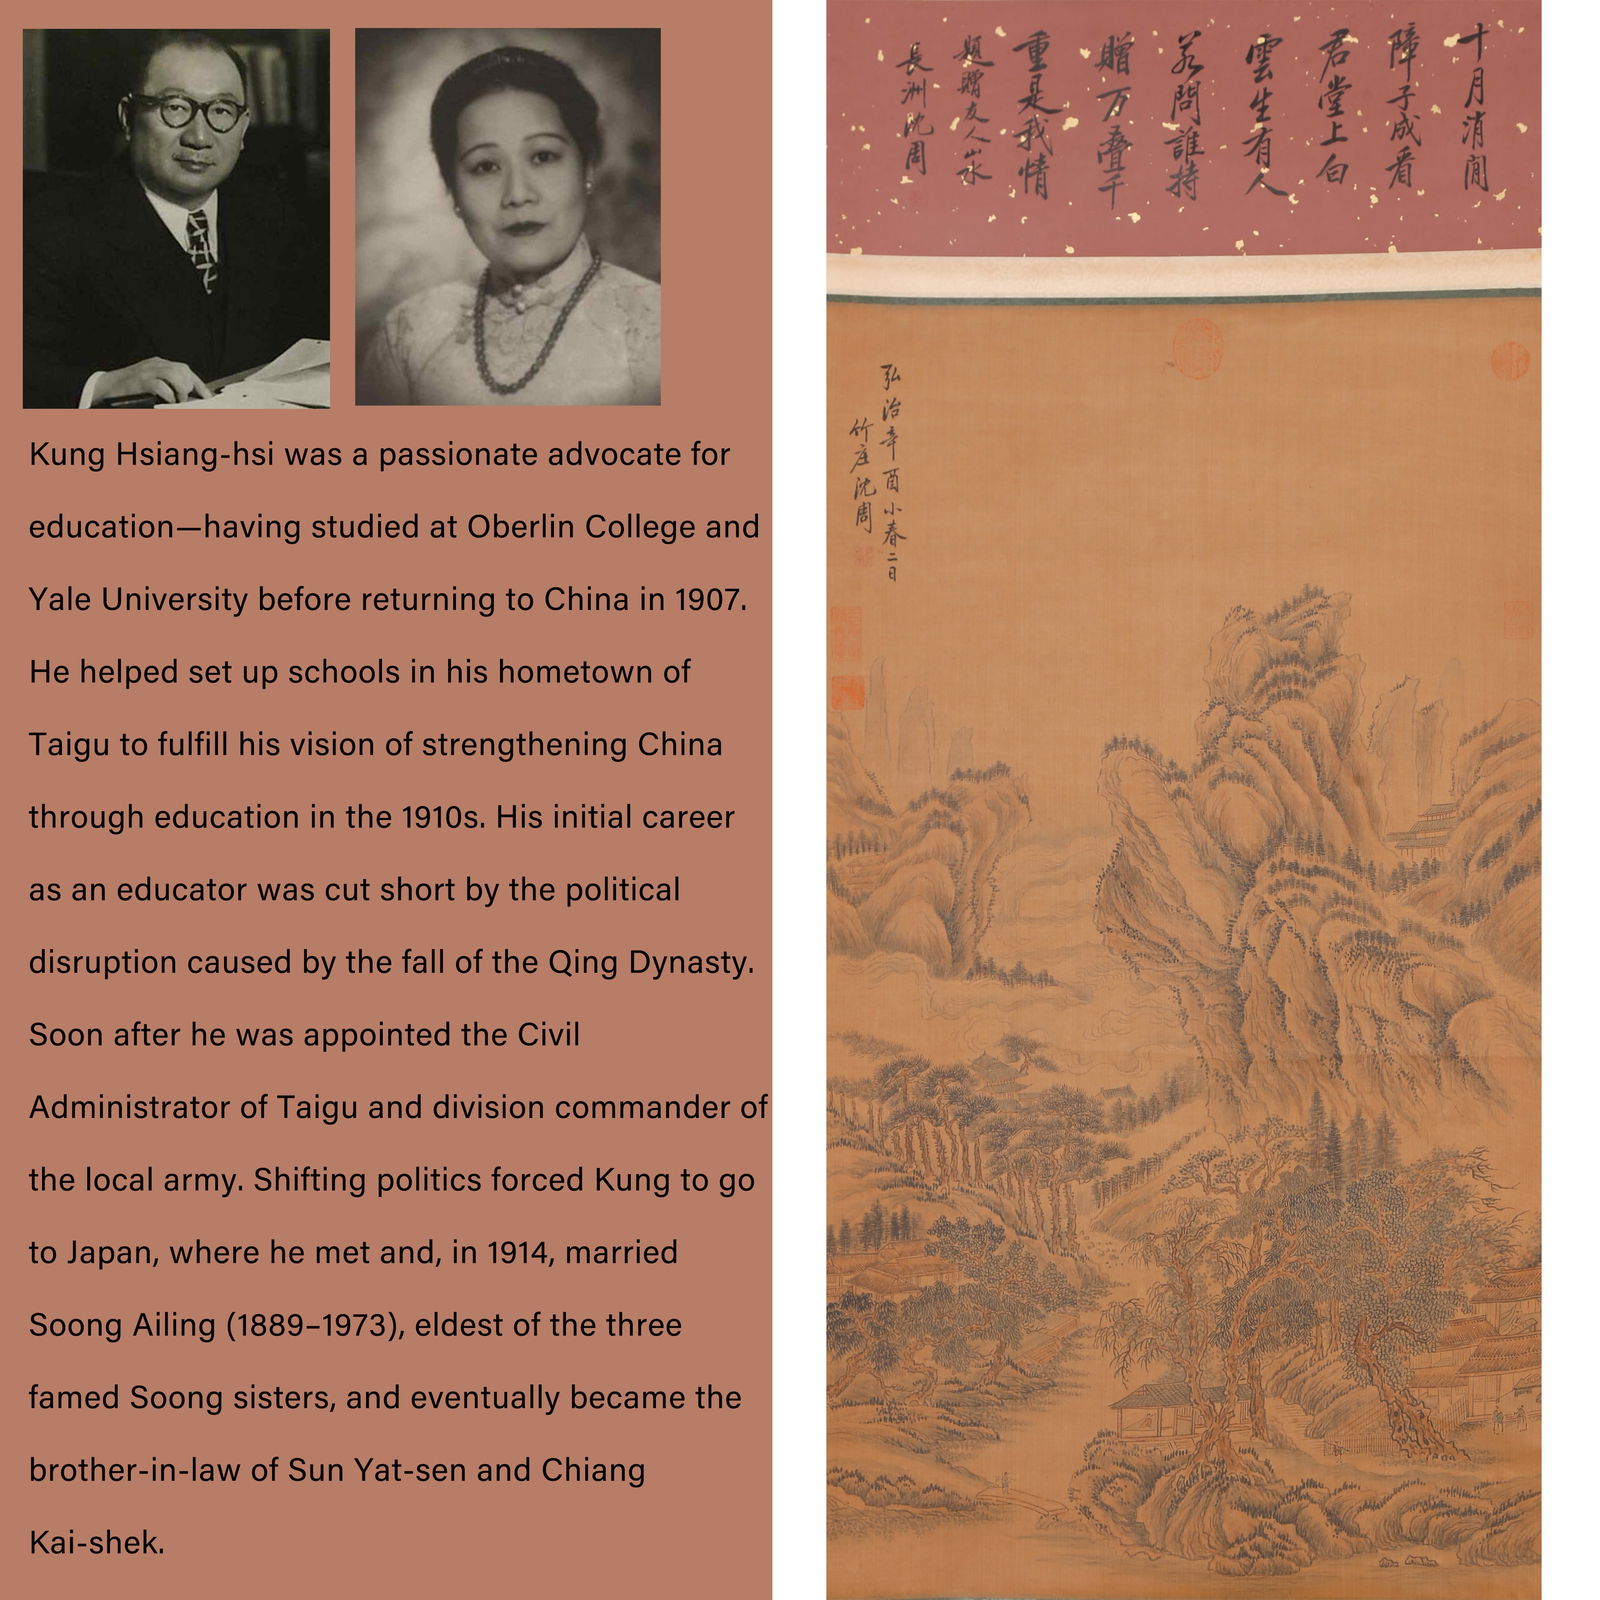 Kung Hsiang-hsi was a passionate advocate for
education—having studied at Oberlin College and
Yale University before returning to China in 1907.
He helped set up schools in his hometown of
Taigu to fulfill his vision of strengthening China
through education in the 1910s. His initial career
as an educator was cut short by the political
disruption caused by the fall of the Qing Dynasty.
Soon after he was appointed the Civil
Administrator of Taigu and division commander of
the local army. Shifting politics forced Kung to go
to Japan, where he met and, in 1914, married
Soong Ailing (1889–1973), eldest of the three
famed Soong sisters, and eventually became the
brother-in-law of Sun Yat-sen and Chiang
Kai-shek.
十月消閒
障子成看
君堂上白
雲生有人
若問誰持
贈万叠千
重是我情
題贈友人山水
長洲沈周
弘治辛酉小春二日
竹庄沈周